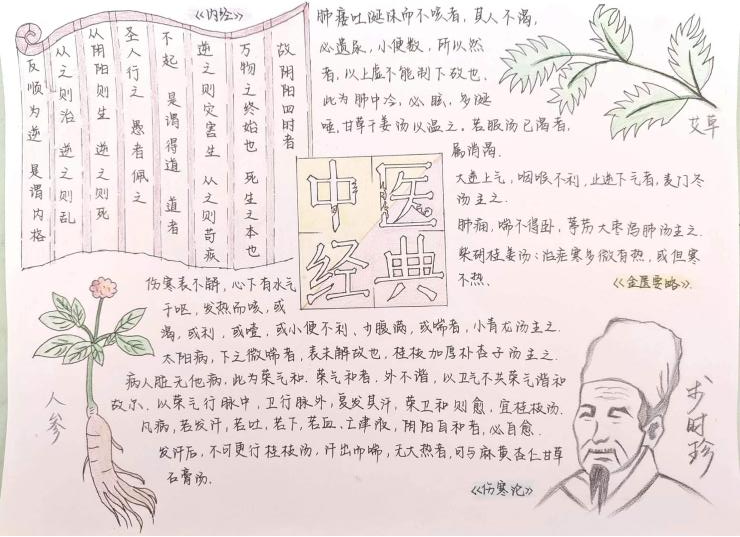 《内经》
故阴阳四时者
万物之终始也 死生之本也
逆之则灾害生 从之则苛疾
不起 是谓得道 道者
圣人行之 愚者佩之
从阴阳则生 逆之则死
从之则治 逆之则乱
反顺为逆 是谓内格
肺痿吐涎沫而不咳者,其人不渴,
必遗尿,小便数,所以然
者,以上虚不能制下故也,
此为肺中冷,必眩,多涎
唾,甘草干姜汤以温之。若服汤已渴者,
属消渴.
大逆上气,咽喉不利,止逆下气者,麦门冬
汤主之.
肺痈,喘不得卧,葶苈大枣泻肺汤主之.
柴胡桂姜汤:治疟寒多微有热,或但寒
不热.
《金匮要略》
艾草
中医
经典
伤寒表不解,心下有水气
干呕,发热而咳,或
渴,或利,或噎,或小便不利、少腹满,或喘者,小青龙汤主之.
太阳病,下之微喘者,表未解故也,桂枝加厚朴杏子汤主之.
病人脏无他病,此为荣气和.荣气和者,外不谐,以卫气不共荣气谐和
故尔.以荣气行脉中,卫行脉外,复发其汗,荣卫和则愈,宜桂枝汤.
凡病,若发汗,若吐,若下,若血、亡津液,阴阳自和者,必自愈.
发汗后,不可更行桂枝汤,汗出而喘,无大热者,可与麻黄杏仁甘草
石膏汤.
《伤寒论》
人参
时珍